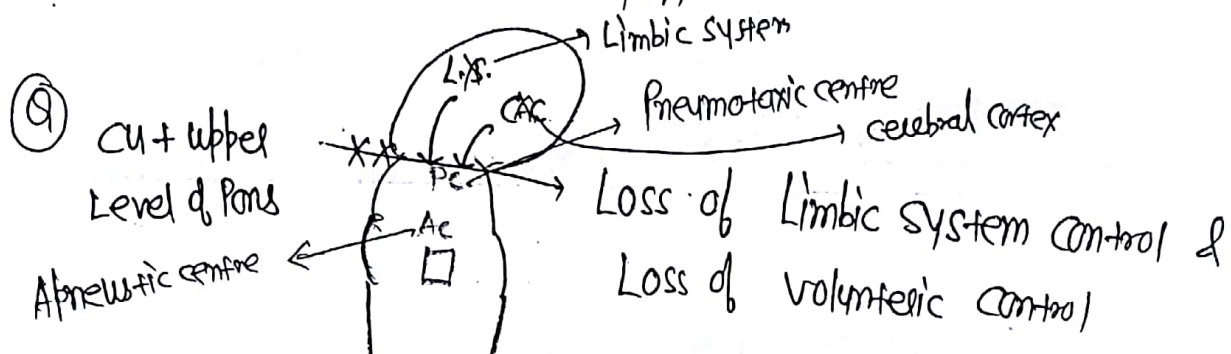 Limbic system
L.S.
Pneumotaxic centre
cerebral cortex
Q
Cut upper
Level of Pons
Pc
Ac
Apneustic centre
Loss of Limbic system control &
Loss of volunteric control